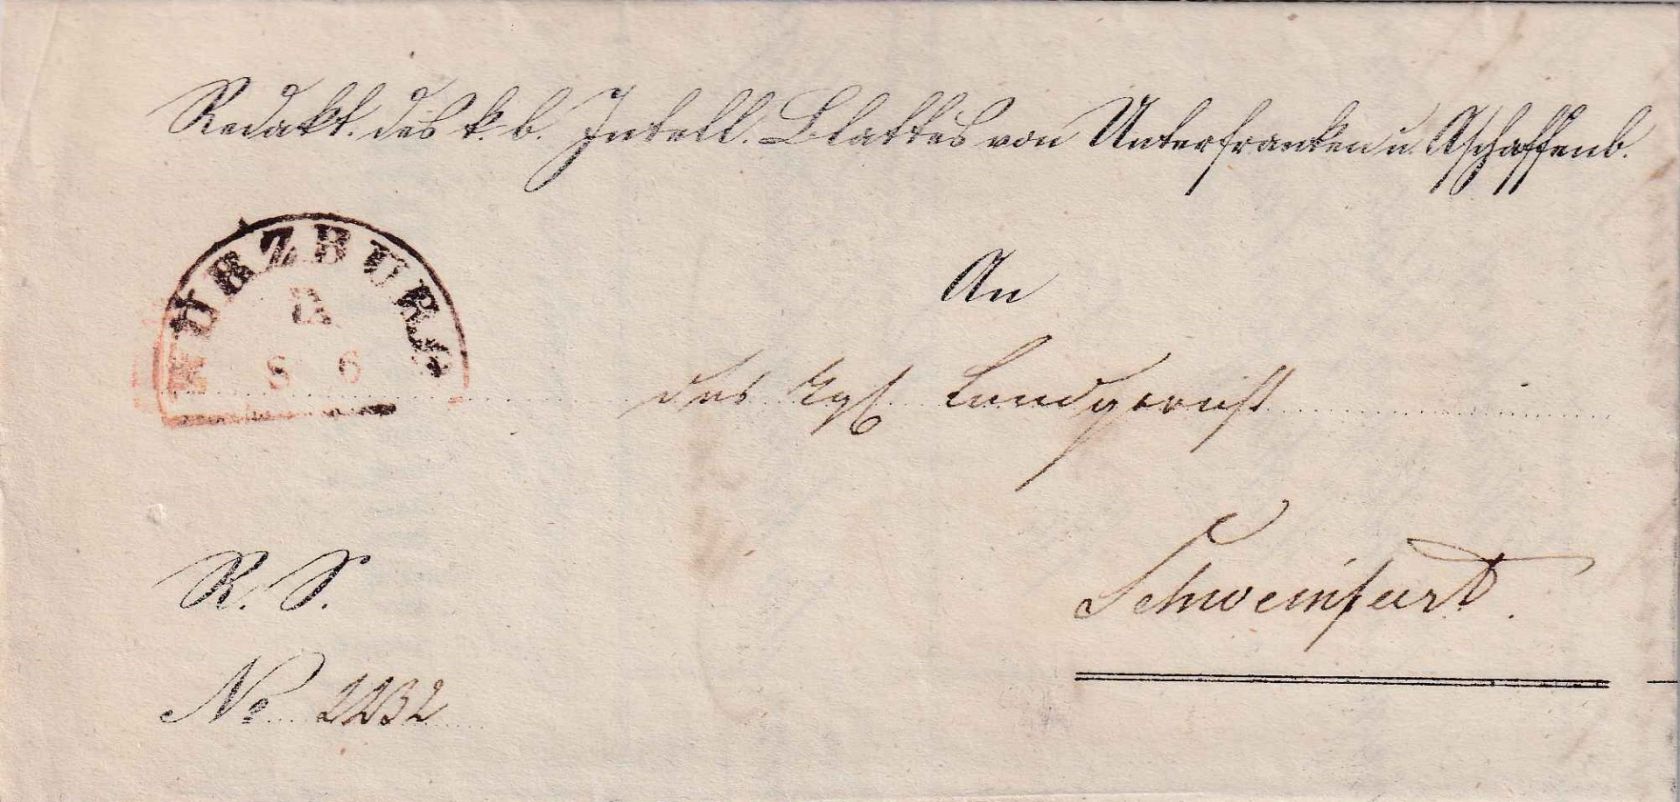 Redakt. des k. b. Intell. Blattes von Unterfranken u. Aschaffenb.
WÜRZBURG
IX
8 6
An
das kgl. Landgericht
Schweinfurt.
R. S.
No 2232